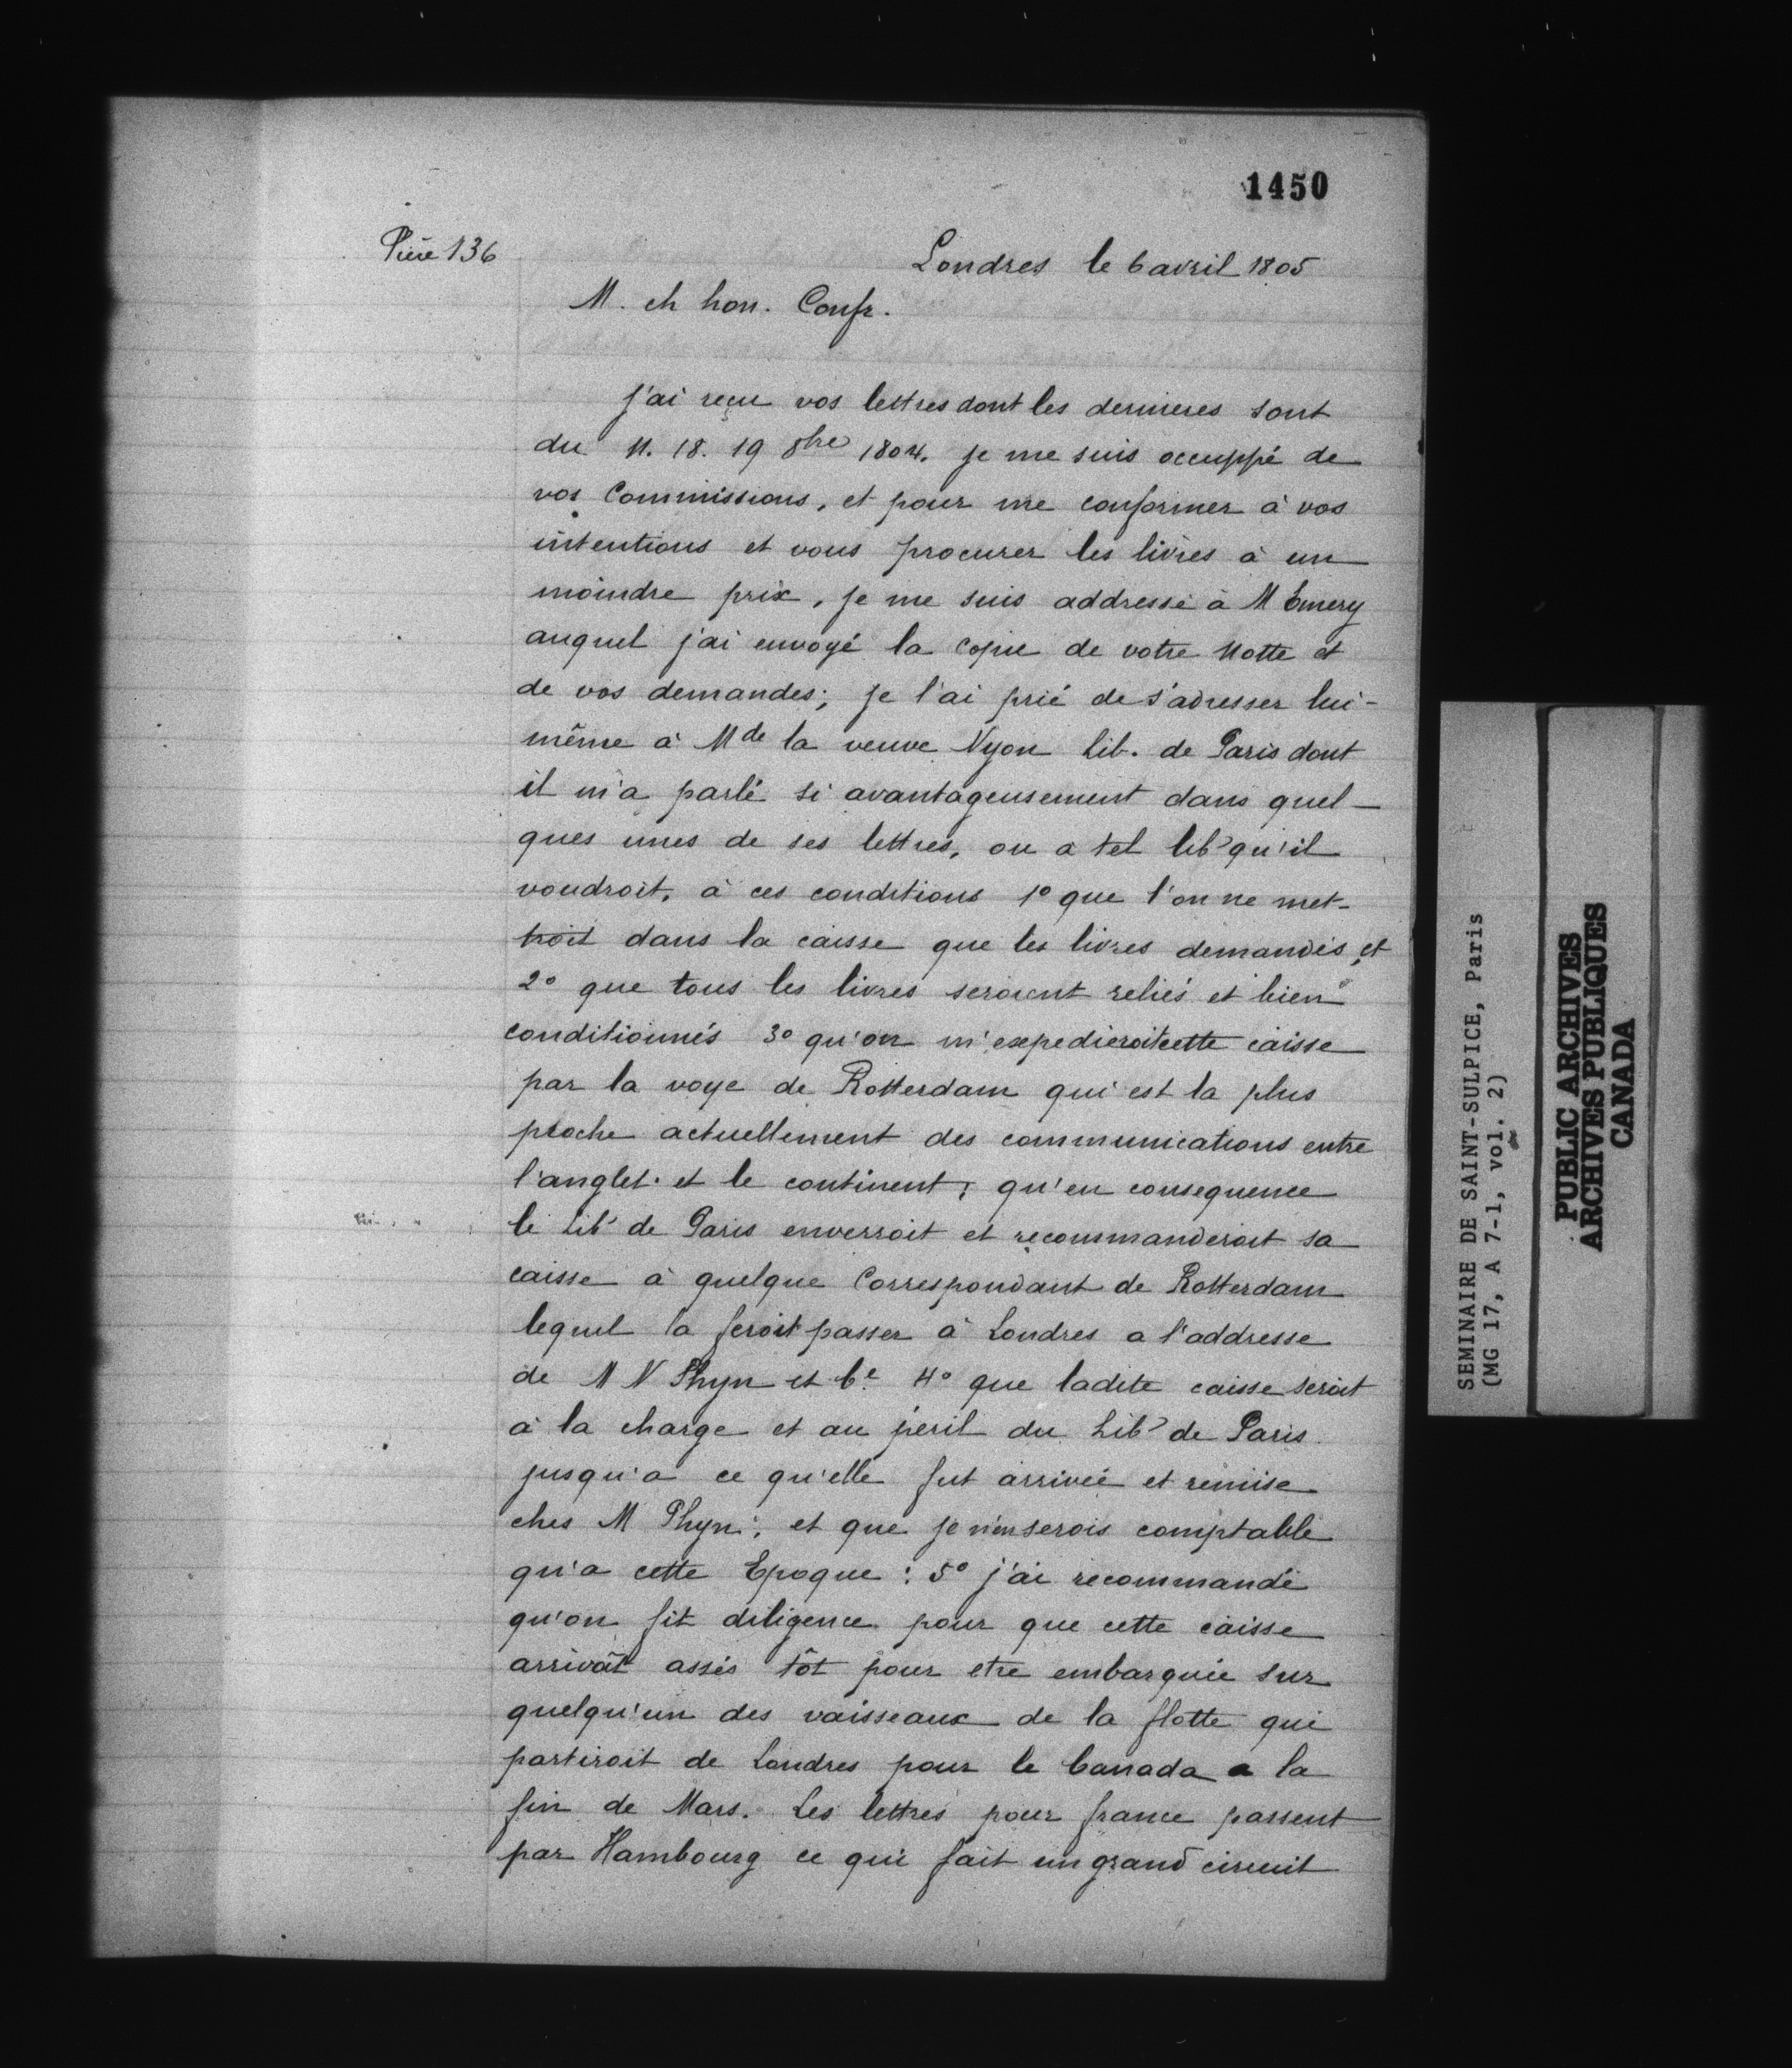 1450
Pièce 136
Londres le 6 avril 1805
M. ch hon. Confr.
J'ai reçu vos lettres dont les dernieres sont
du 11. 18. 19 8bre 1804. je me suis occuppé de
vos Commissions, et pour me conformer à vos
intentions et vous procurer les livres à un
moindre prix, je me suis addressé à M Emery
auquel j'ai envoyé la copie de votre Notte et
de vos demandes; je l'ai prié de s'adresser lui-
même à Mde la veuve Nyon Lib. de Paris dont
il m'a parlé si avantageusement dans quel-
ques unes de ses lettres, ou a tel libr qu'il
voudroit, à ces conditions 1° que l'on ne met-
troit dans la caisse que les livres demandés, et
2° que tous les livres seroient reliés et bien
conditionnés 3° qu'on m'expedieroit cette caisse
par la voye de Rotterdam qui est la plus
proche actuellement des communications entre
l'anglet. et le continent; qu'en consequence
le Libr de Paris enverroit et recommanderoit sa
caisse à quelque Correspondant de Rotterdam
lequel la feroit passer à Londres a l'addresse
de M N Phyn et Ce. 4° que ladite caisse seroit
à la charge et au péril du Libr de Paris
jusqu'a ce qu'elle fut arrivée et remise
ches M Phyn; et que je n'en serois comptable
qu'a cette Epoque: 5° j'ai recommandé
qu'on fit diligence pour que cette caisse
arrivât assés tôt pour etre embarquée sur
quelqu'un des vaisseaux de la flotte qui
partiroit de Londres pour le Canada a la
fin de Mars. Les lettres pour france passent
par Hambourg ce qui fait un grand circuit
SEMINAIRE DE SAINT-SULPICE, Paris
(MG 17, A 7-1, vol. 2)
PUBLIC ARCHIVES
ARCHIVES PUBLIQUES
CANADA